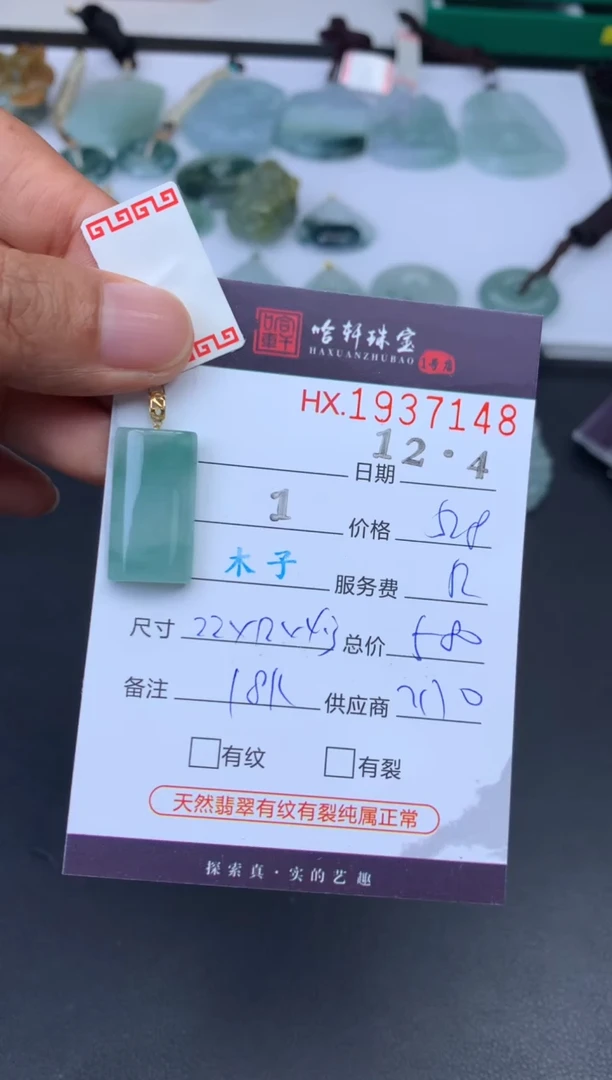 哈轩珠宝
HAXUANZHUBAO 1号店
HX.1937148
日期 12·4
1 价格 528
木子 服务费
尺寸 22×12×4.3 总价 580
备注 18K 供应商
有纹 有裂
天然翡翠有纹有裂纯属正常
探索真·实的艺趣